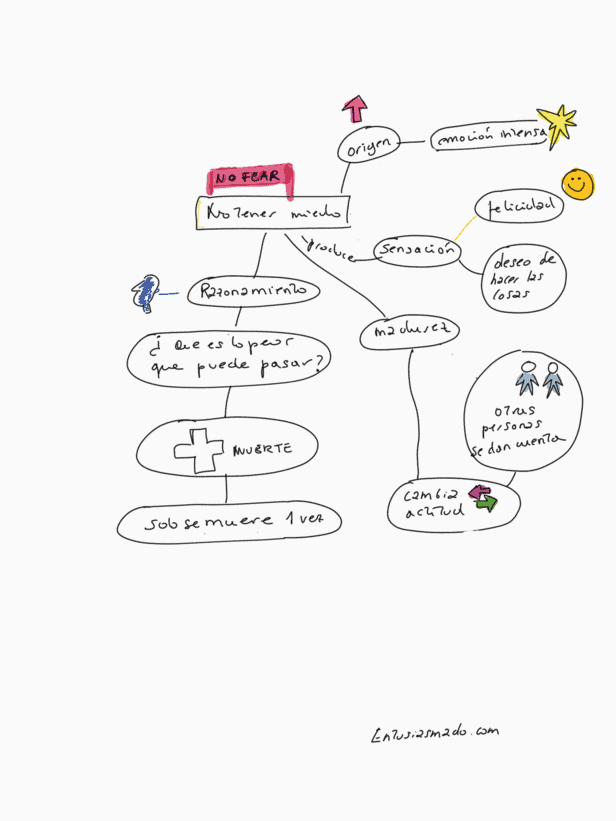 origen
emoción intensa
NO FEAR
No tener miedo
felicidad
produce
sensación
deseo de
hacer las
cosas
Razonamiento
madurez
¿ que es lo peor
que puede pasar?
otras
personas
se dan cuenta
MUERTE
cambia
actitud
solo se muere 1 vez
Entusiasmado.com